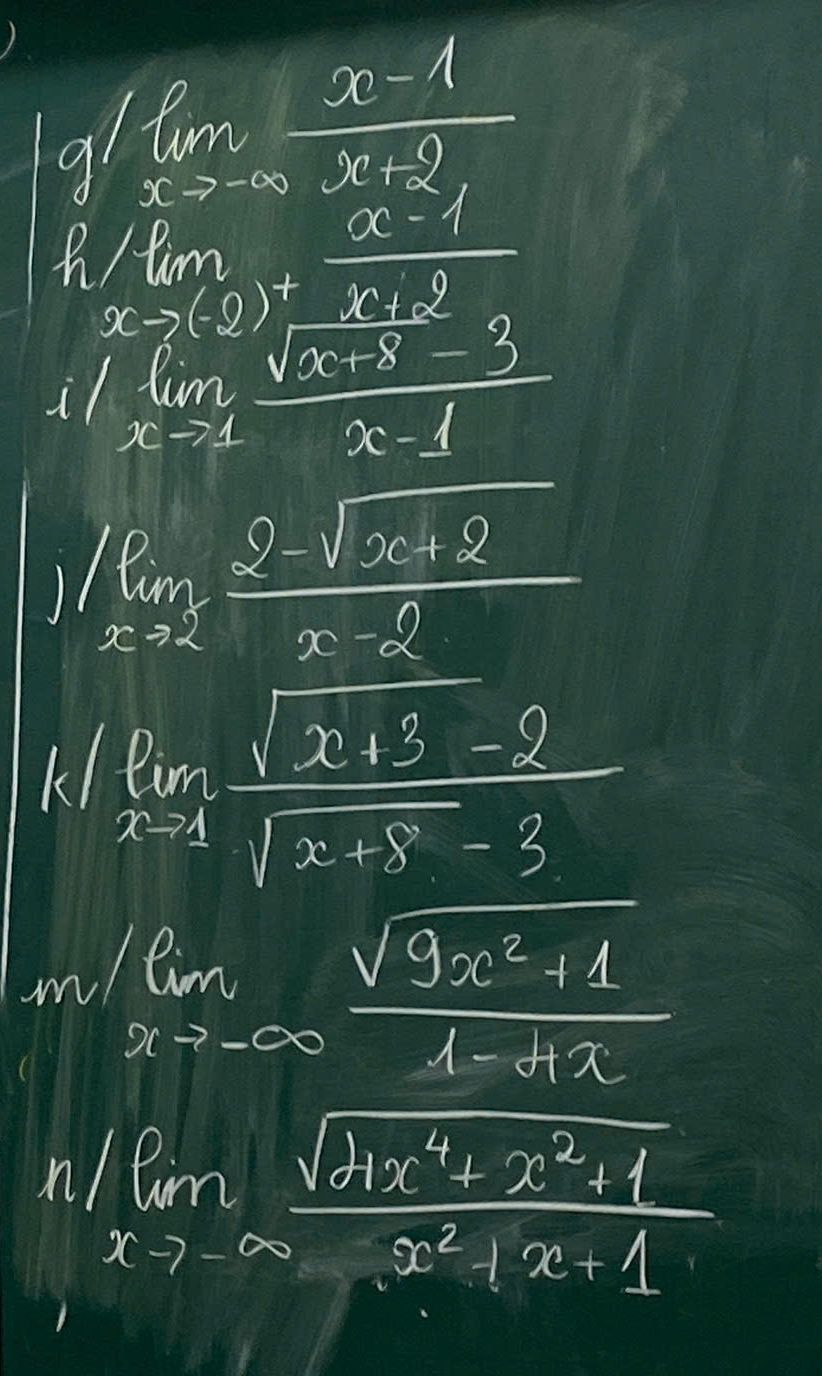 g/ lim x→-∞ (x-1)/(x+2)
h/ lim x→(-2)⁺ (x-1)/(x+2)
i/ lim x→1 (√(x+8) - 3)/(x-1)
j/ lim x→2 (2-√(x+2))/(x-2)
k/ lim x→1 (√(x+3) - 2)/(√(x+8) - 3)
m/ lim x→-∞ √(9x²+1)/(1-4x)
n/ lim x→-∞ √(4x⁴+x²+1)/(x²+x+1)